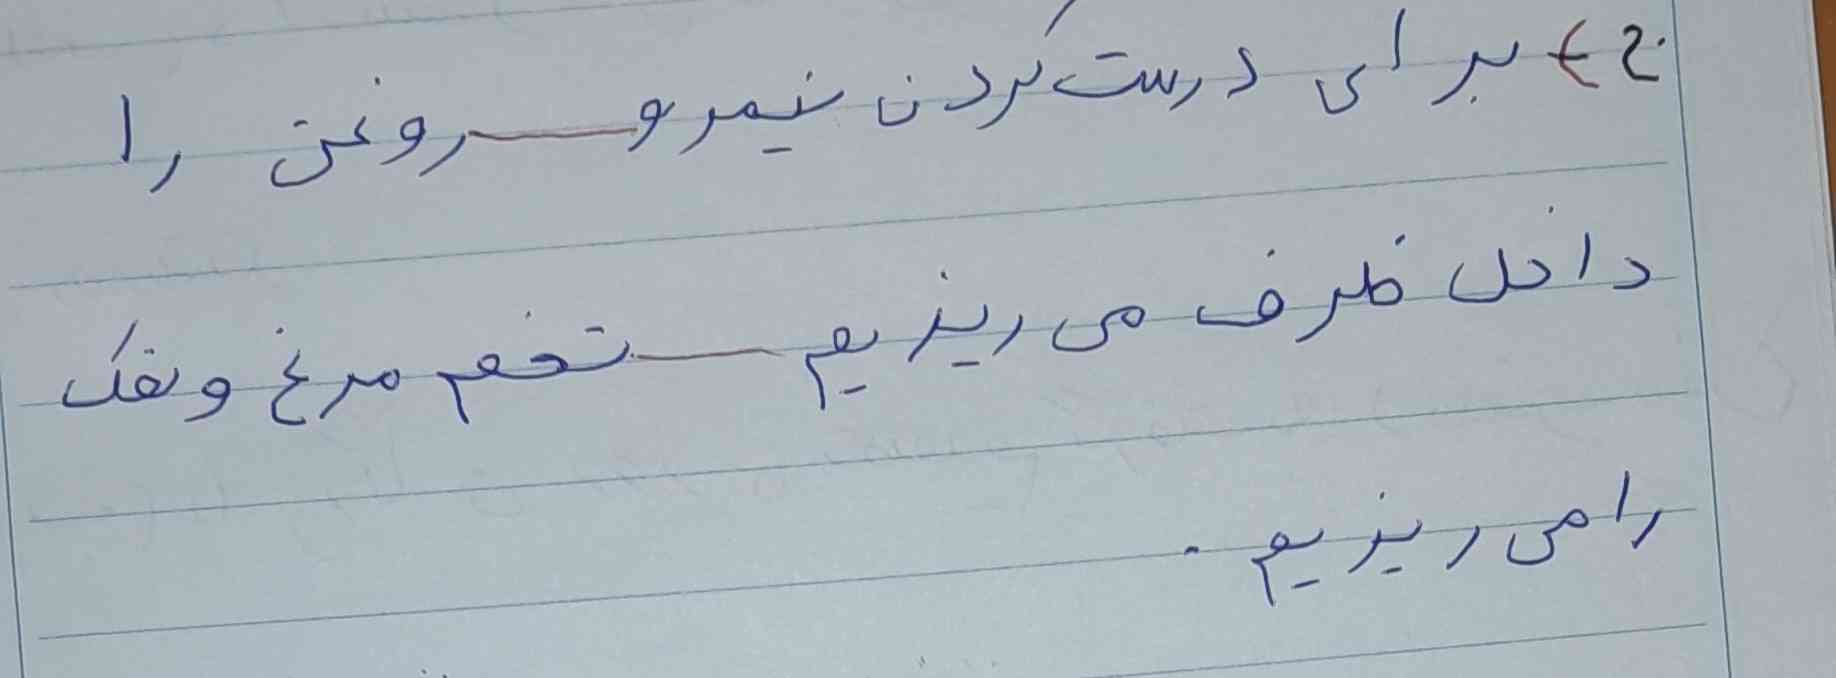 ج) برای درست کردن نیمرو — روغن را
داخل ظرف می ریزیم — تخم مرغ و نمک
را می ریزیم .